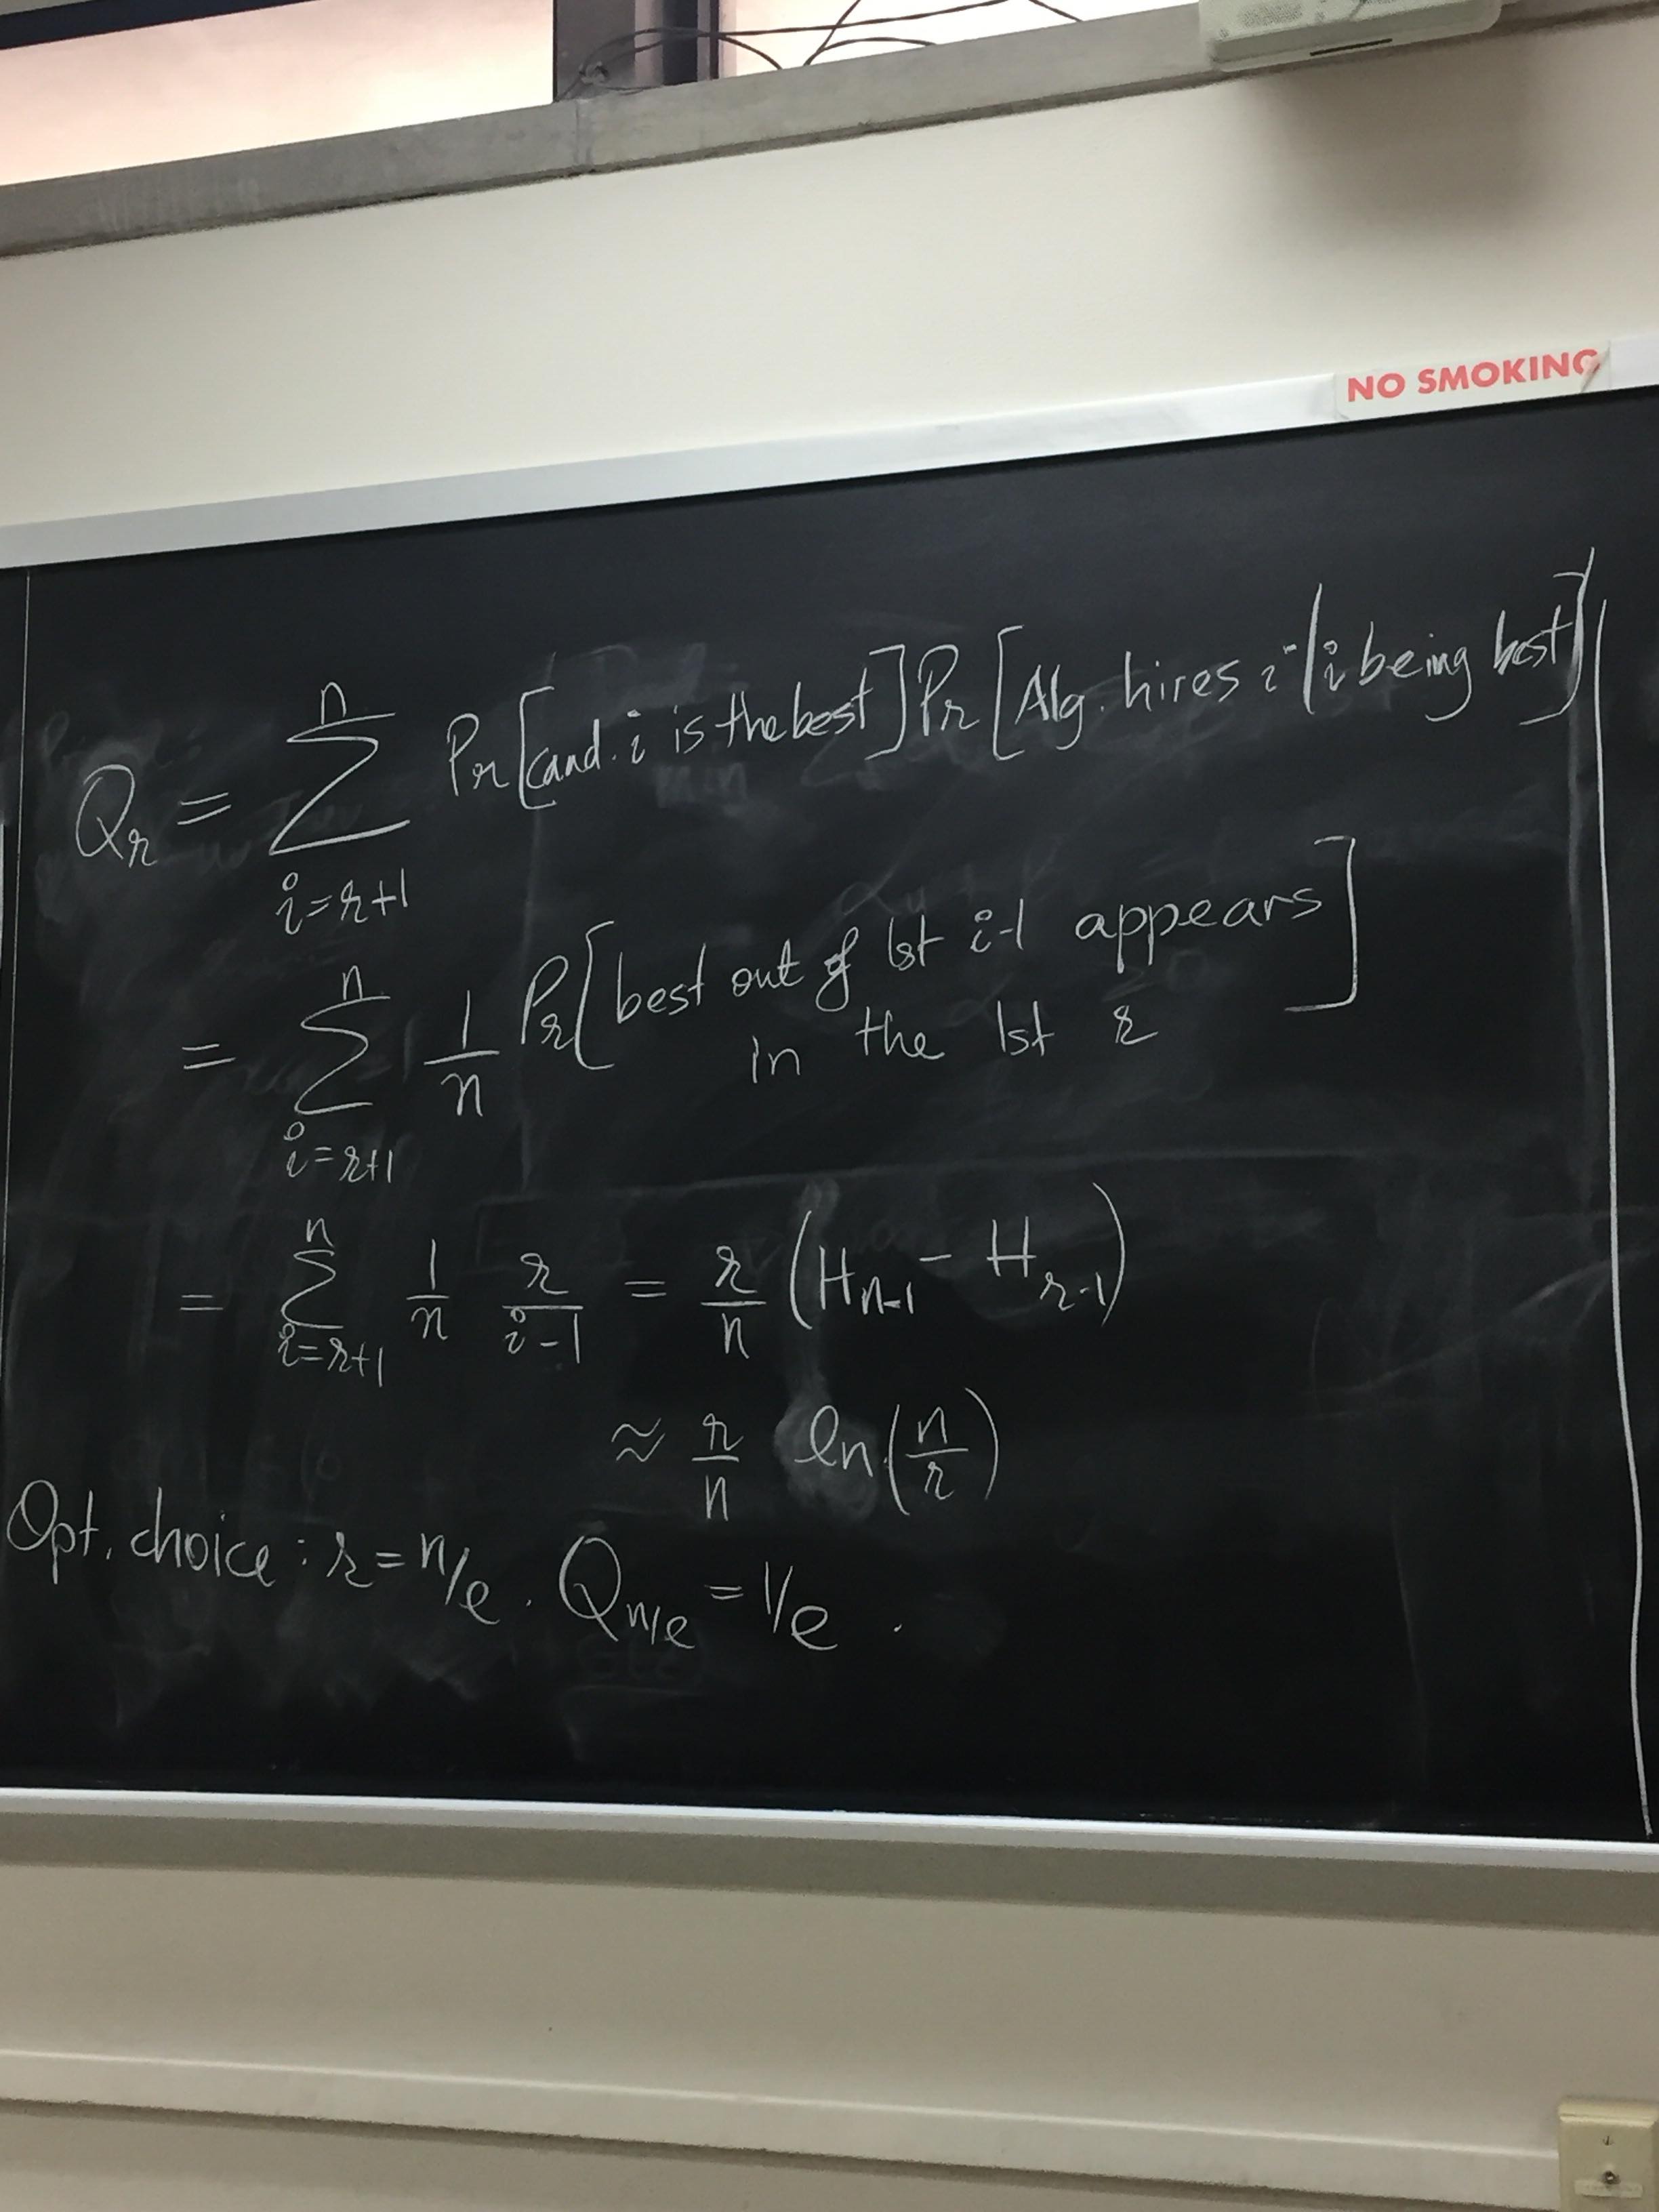 NO SMOKING
Q_r = \sum_{i=r+1}^{n} Pr[cand. i is the best] Pr[Alg. hires i | i being best]
= \sum_{i=r+1}^{n} \frac{1}{n} Pr[best out of 1st i-1 appears
in the 1st r]
= \sum_{i=r+1}^{n} \frac{1}{n} \frac{r}{i-1} = \frac{r}{n} (H_{n-1} - H_{r-1})
≈ \frac{r}{n} ln(\frac{n}{r})
Opt. choice: r = n/e. Q_{n/e} = 1/e.